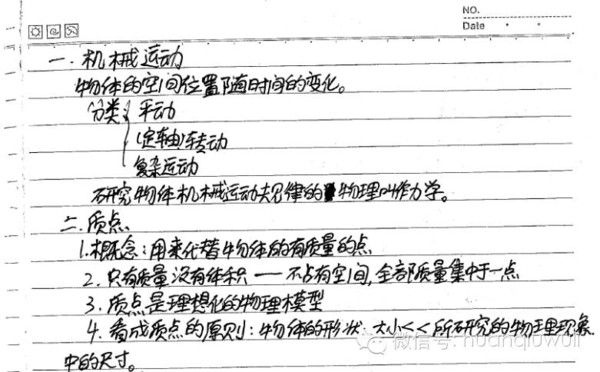 NO.
Date
一. 机械运动
物体的空间位置随时间的变化。
分类 平动
(定轴)转动
复杂运动
研究物体机械运动规律的物理叫作力学。
二. 质点
1. 概念:用来代替物体的有质量的点
2. 只有质量没有体积——不占有空间,全部质量集中于一点
3. 质点是理想化的物理模型
4. 看成质点的原则:物体的形状.大小<<所研究的物理现象
中的尺寸。
微信号: huanqiuwuli